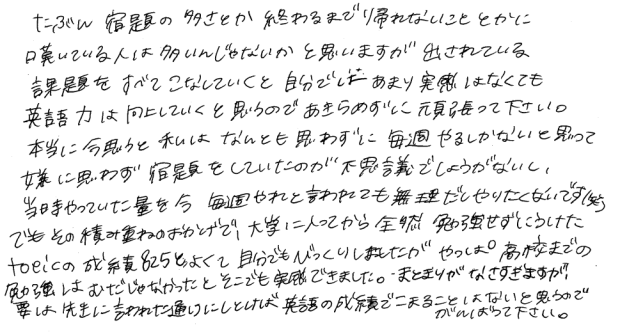 たぶん 宿題の 多さとか 終わるまで帰れないこと とかに
嘆いている人は 多いんじゃないか と思いますが 出されている
課題を すべて こなしていくと 自分では あまり 実感はなくても
英語力は向上していくと思うので あきらめずに 頑張って下さい。
本当に 今思うと 私は なんとも 思わずに 毎週 やるしかないと思って
嫌に思わず 宿題をしていたのが 不思議でしょうがないし、
当時やっていた量を今 毎週やれと言われても 無理だしやりたくないです(笑)
でもその積み重ねのおかげで、大学に入ってから全然 勉強せずにうけた
toeicの成績825とよくて 自分でもびっくりしましたが やっぱり 高校までの
勉強はむだじゃなかったと そこでも実感できました。まとまりがなさすぎますが、
要は 先生に言われた通りにしとけば 英語の成績でこまることはないと思うので
がんばって下さい。